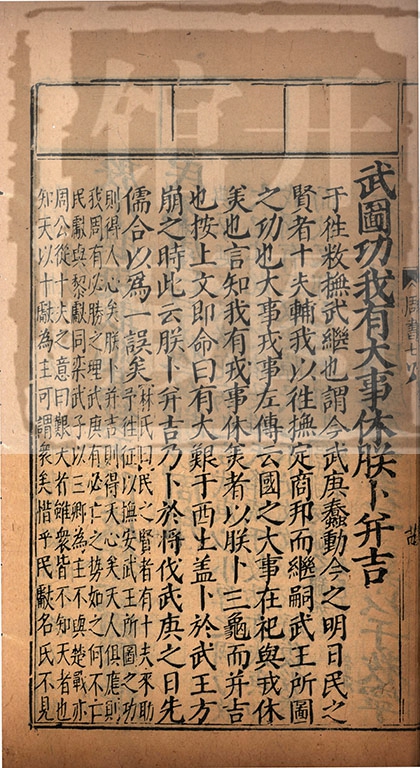 武圖功我有大事休朕卜幷吉
于往敉撫武繼也謂今武庚蠢動今之明日民之
賢者十夫輔我以往撫定商邦而繼嗣武王所圖
之功也大事戎事左傳云國之大事在祀與戎休
美也言知我有戎事休美者以朕卜三龜而幷吉
也按上文即命曰有大艱于西土盖卜於武王方
崩之時此云朕卜幷吉乃卜於將伐武庚之日先
儒合以為一誤矣
林氏曰民之賢者有十夫來助
予往征以撫安武王所圖之功
則得人心矣朕卜并吉則得天心矣天人俱應則
我周有必勝之理武庚有必亡之勢如之何不亡
民獻與黎獻同栾武子以三卿為主不與楚戰亦
周公從十夫之意曰艱大者雖衆皆不知天者也
知天以十獻為主可謂衆矣惜乎民獻名氏不見